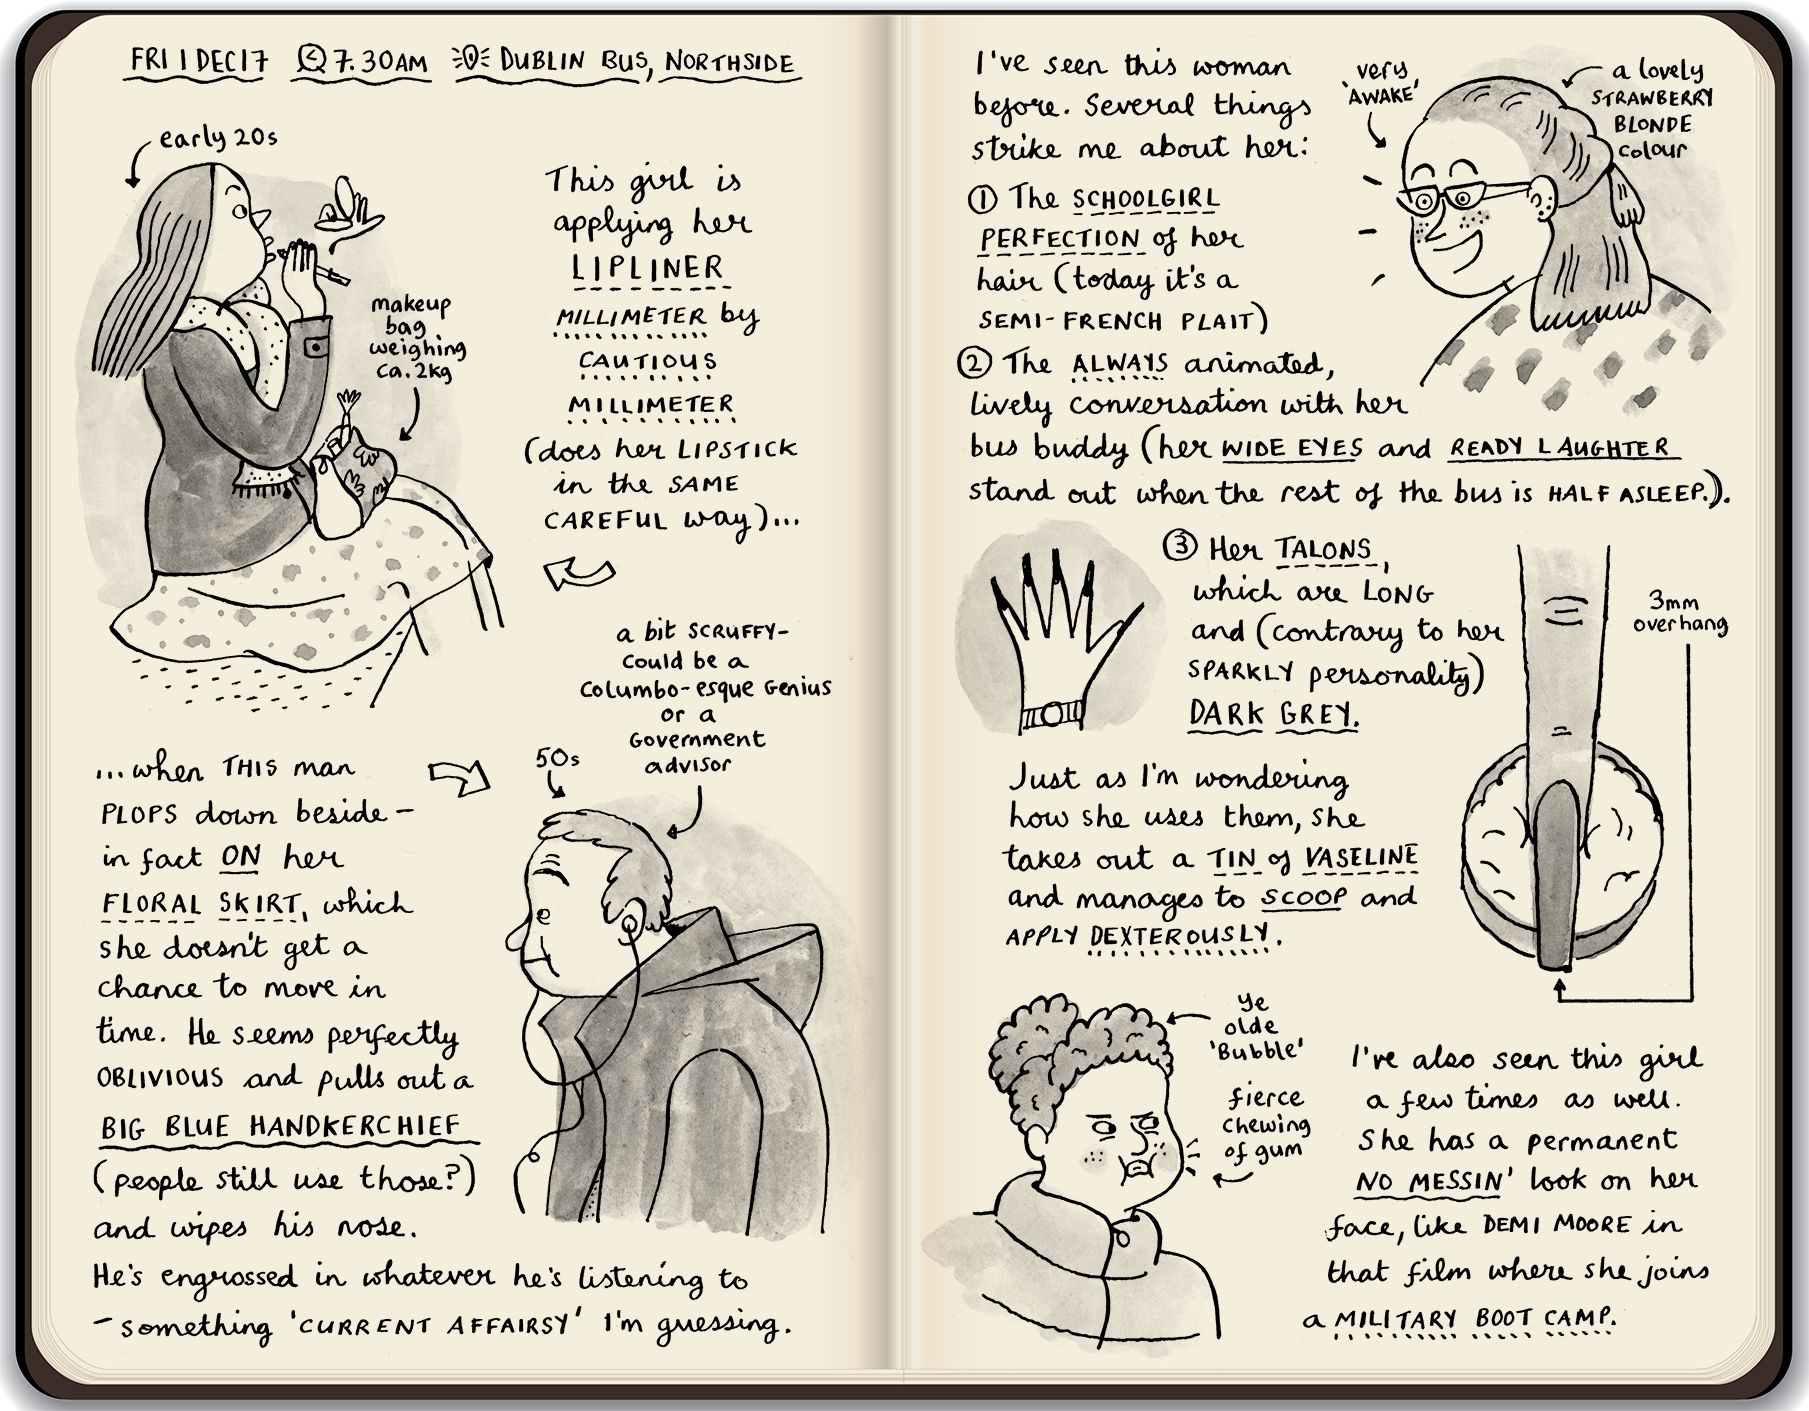 FRI 1 DEC 17 7.30AM DUBLIN BUS, NORTHSIDE
early 20s
This girl is
applying her
LIPLINER
MILLIMETER by
CAUTIOUS
MILLIMETER
(does her LIPSTICK
in the SAME
CAREFUL way)...
makeup
bag
weighing
ca. 2kg
...when THIS man
PLOPS down beside -
in fact ON her
FLORAL SKIRT, which
she doesn't get a
chance to move in
time. He seems perfectly
OBLIVIOUS and pulls out a
BIG BLUE HANDKERCHIEF
(people still use those?)
and wipes his nose.
He's engrossed in whatever he's listening to
- something 'CURRENT AFFAIRSY' I'm guessing.
50s
a bit SCRUFFY-
could be a
Columbo-esque Genius
or a
Government
advisor
I've seen this woman
before. Several things
strike me about her:
① The SCHOOLGIRL
PERFECTION of her
hair (today it's a
SEMI-FRENCH PLAIT)
very
'AWAKE'
a lovely
STRAWBERRY
BLONDE
colour
② The ALWAYS animated,
lively conversation with her
bus buddy (her WIDE EYES and READY LAUGHTER
stand out when the rest of the bus is HALF ASLEEP.).
③ Her TALONS,
which are LONG
and (contrary to her
SPARKLY personality)
DARK GREY.
3mm
overhang
Just as I'm wondering
how she uses them, she
takes out a TIN of VASELINE
and manages to SCOOP and
APPLY DEXTEROUSLY.
ye
olde
'Bubble'
fierce
chewing
of gum
I've also seen this girl
a few times as well.
She has a permanent
NO MESSIN' look on her
face, like DEMI MOORE in
that film where she joins
a MILITARY BOOT CAMP.